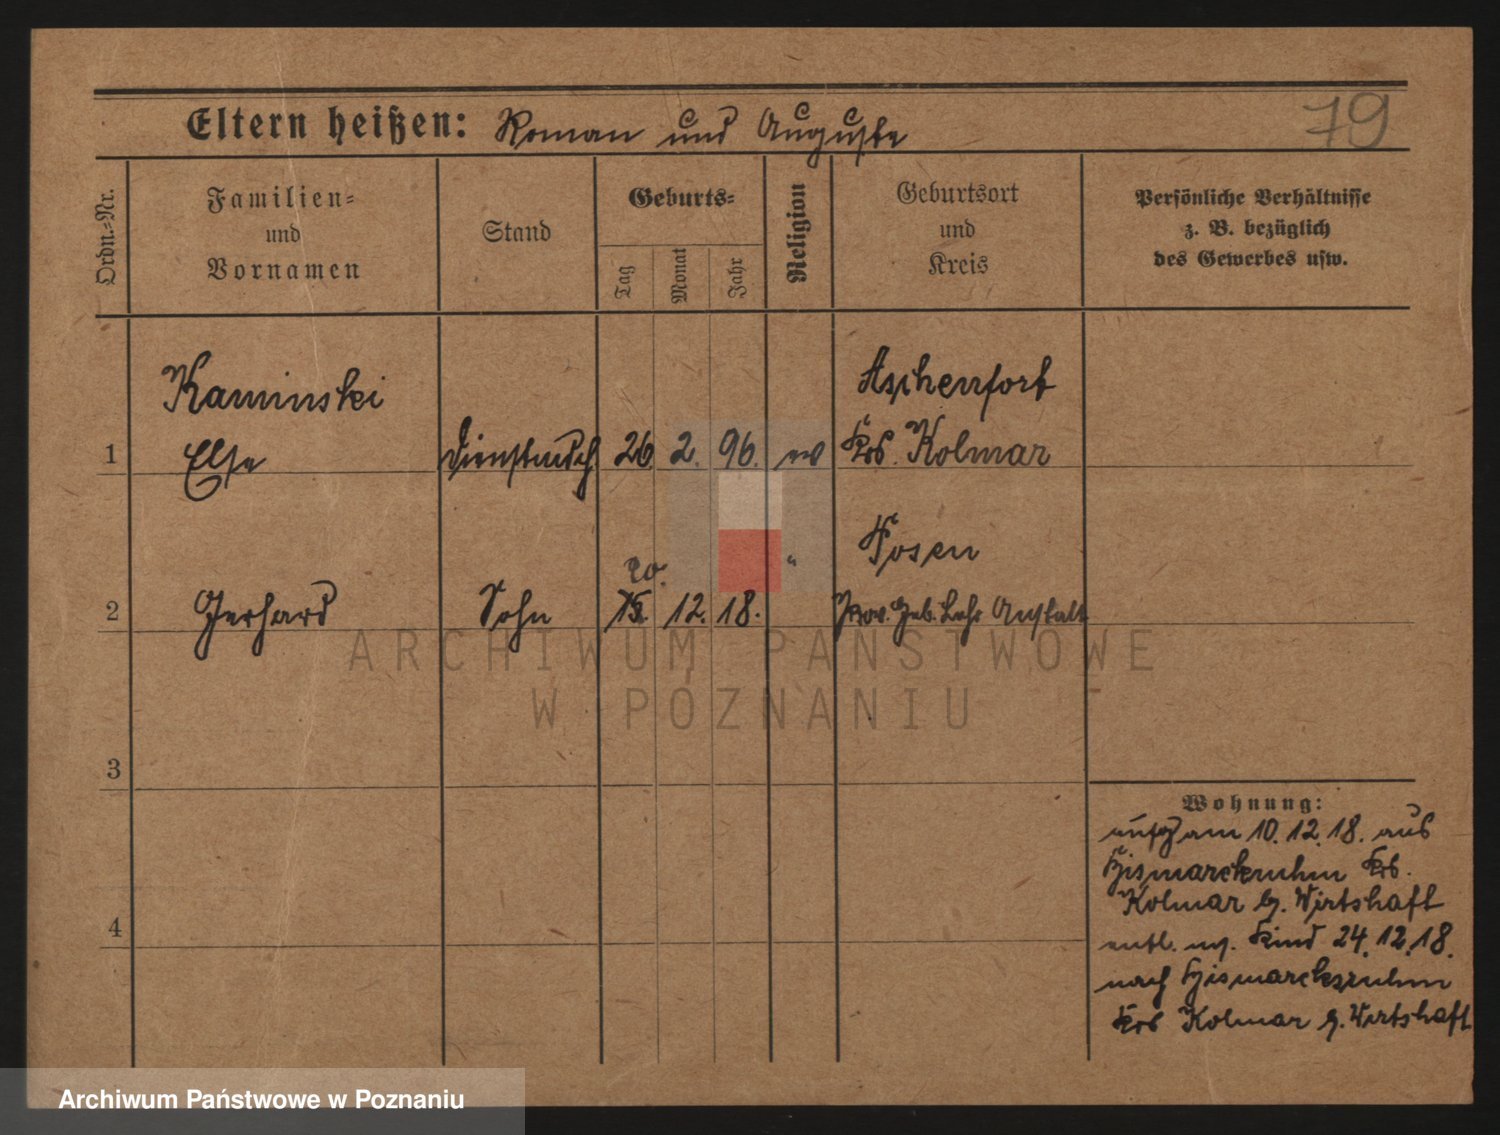 79
Eltern heißen: Roman und Auguste
Ordn.-Nr.
Familien-
und
Vornamen
Stand
Geburts-
Tag
Monat
Jahr
Religion
Geburtsort
und
Kreis
Persönliche Verhältnisse
z. B. bezüglich
des Gewerbes usw.
Kaminski
Aschenfort
1 Else Dienstmdch 26. 2. 96. ev Krs. Kolmar
Posen
20. "
2 Gerhard Sohn 15. 12. 18. Prov. Heb. Lehr Anstalt
3
4
Wohnung:
aufg am 10. 12. 18. aus
Bismarckruhm Krs.
Kolmar b. Wirtshaft
entl. m. Kind 24. 12. 18.
nach Bismarcksruhm
Krs Kolmar b. Wirtshaft
ARCHIWUM PAŃSTWOWE
W POZNANIU
Archiwum Państwowe w Poznaniu